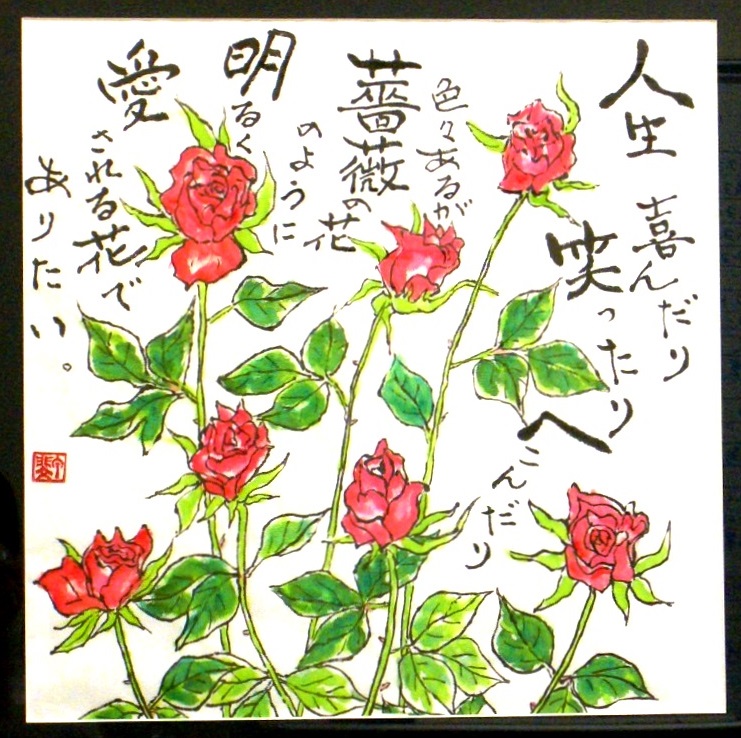 人生
喜んだり
笑ったり
へこんだり
色々あるが
薔薇の花
のように
明るく
愛
される花で
ありたい。